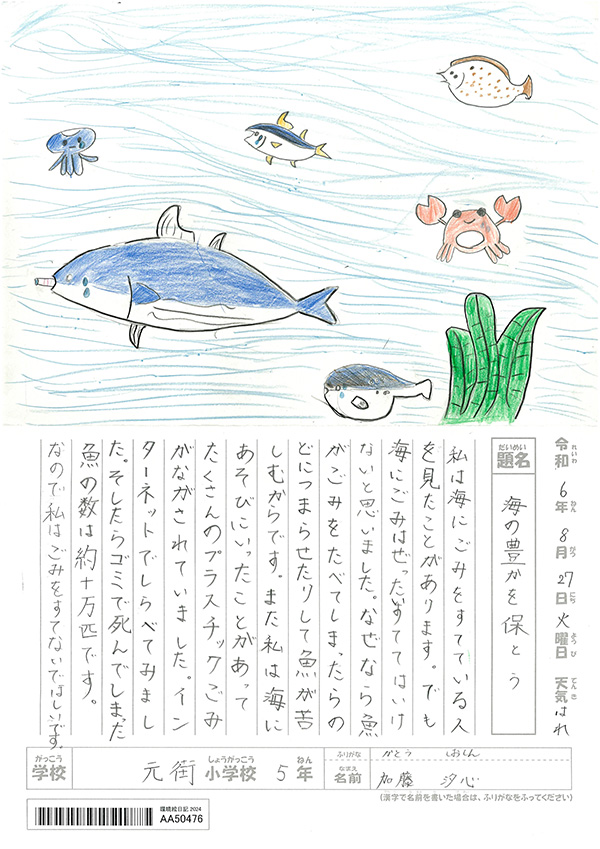 令和6年8月27日火曜日 天気はれ
れいわ ねん がつ にち ようび てんき
だいめい
題名 海の豊かを保とう
私は海にごみをすてている人
を見たことがあります。でも
海にごみはぜったいすててはいけ
ないと思いました。なぜなら魚
がごみをたべてしまったらの
どにつまらせたりして魚が苦
しむからです。また私は海に
あそびにいったことがあって
たくさんのプラスチックごみ
がながされていました。イン
ターネットでしらべてみまし
た。そしたらゴミで死んでしまった
魚の数は約十万匹です。
なので私はごみをすてないでほしいです。
がっこう しょうがっこう ねん
学校 元街小学校 5年
ふりがな かとう しおん
なまえ
名前 加藤 汐心
(漢字で名前を書いた場合は、ふりがなをふってください)
環境絵日記 2024
AA50476